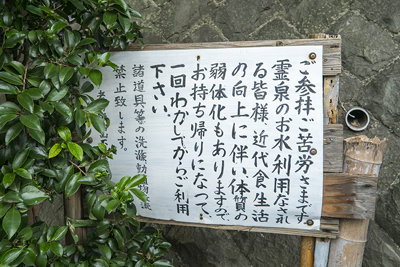 ご参拝ご苦労さまです。
霊泉のお水利用なされ
る皆様、近代食生活
の向上に伴い体質の
弱体化もありますので、
お持ち帰りになって、
一回わかしてからご利用
下さい。
諸道具等の洗滌、動物
禁止致します。